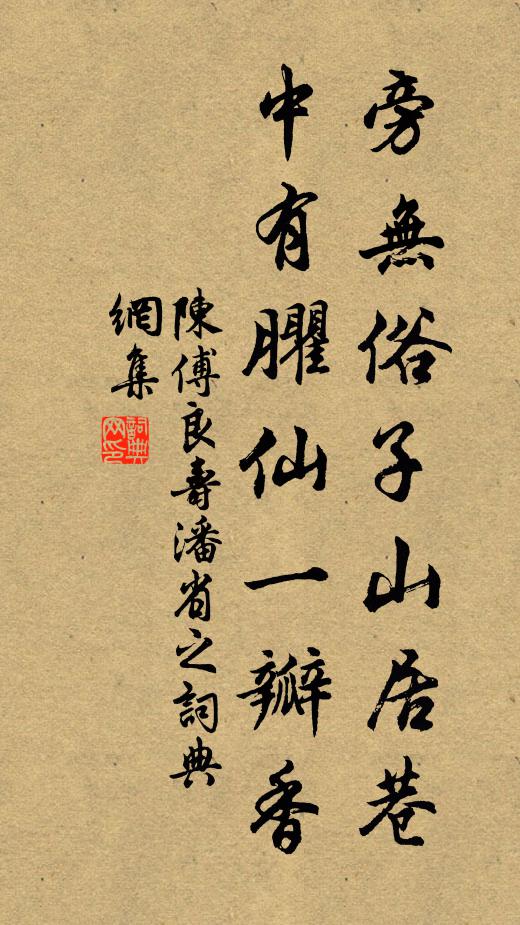 旁無俗子山居巷
中有臞仙一瓣香
陳傅良壽潘省之詞典
網集
詞典
网印